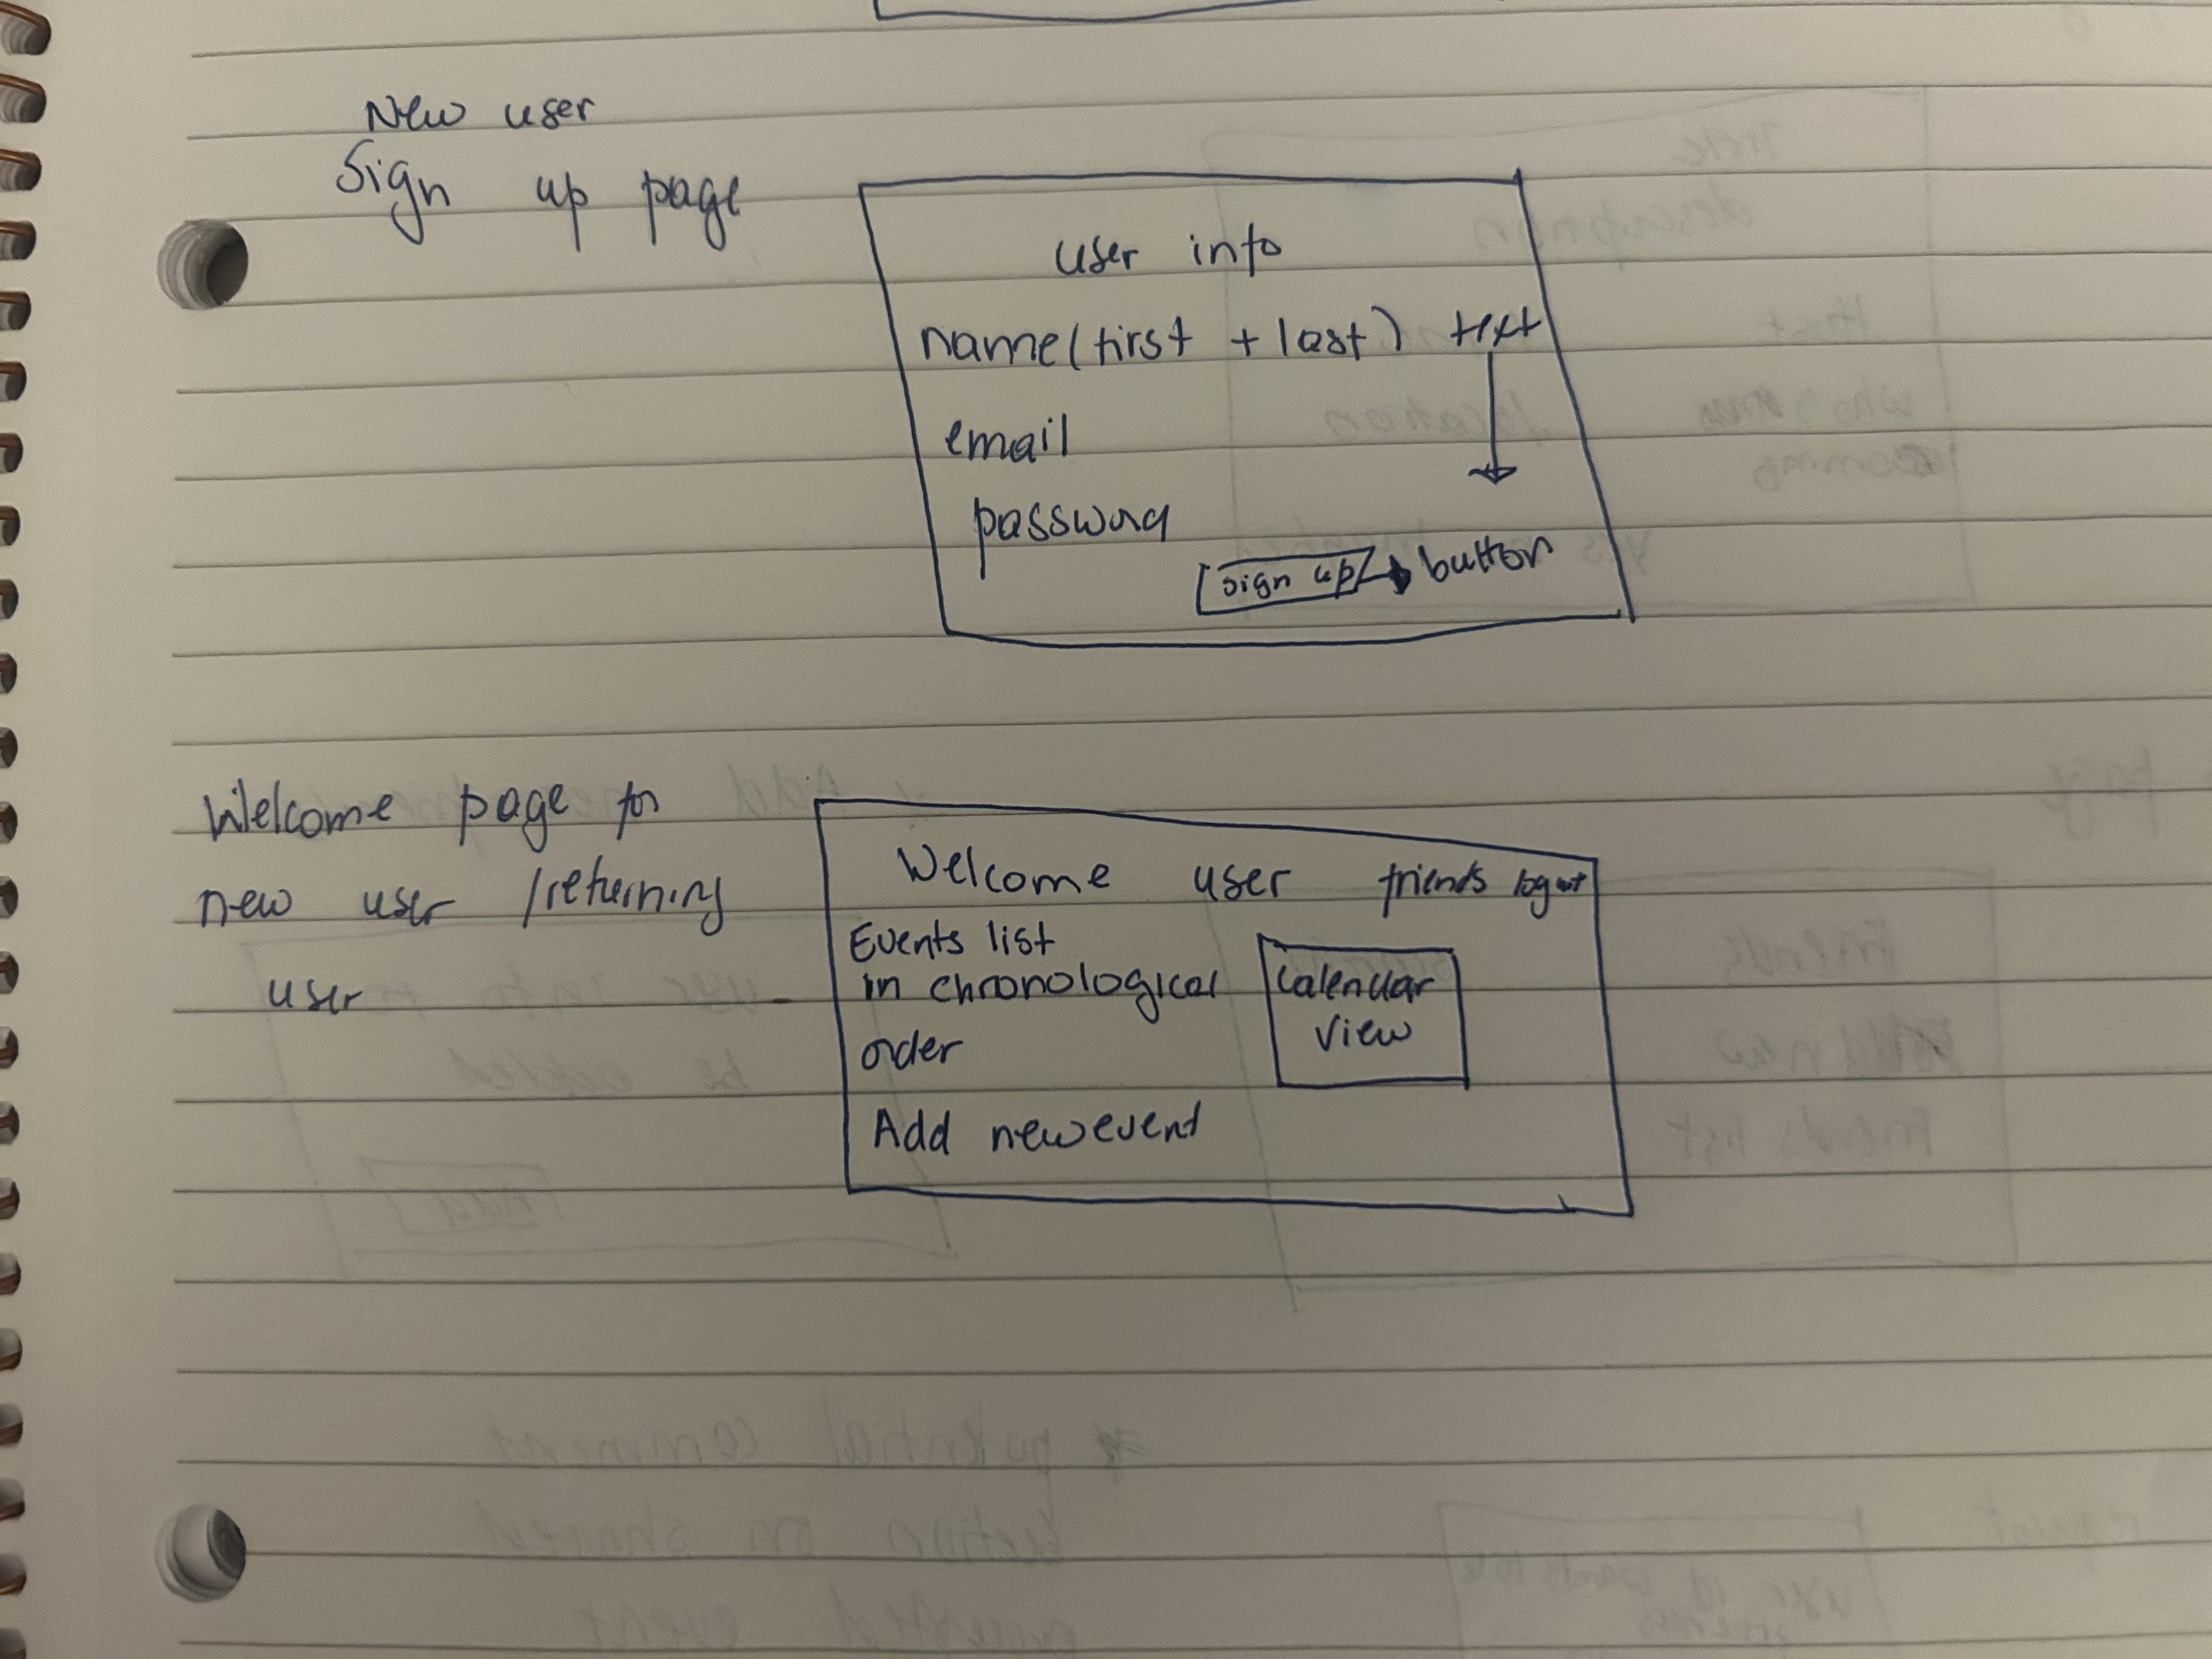 New user
Sign up page
user info
name (first + last) text
email
password
sign up → button
Welcome page for
new user / returning
user
Welcome user friends logout
Events list
in chronological
order
Calendar
View
Add new event